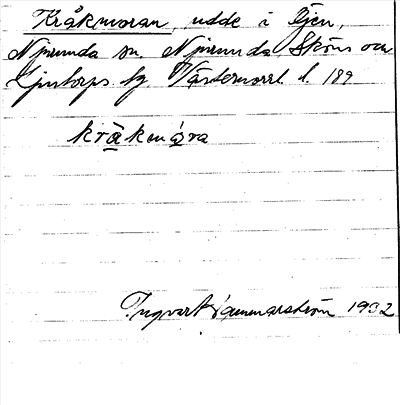 Kråkmoran, udde i Öjen,
Njurunda sn. Njurunda, Sköns och
Ljustorps tg Västernorrl. l. 189
kråkmo̱ra
Ingvart Hammarström 1932